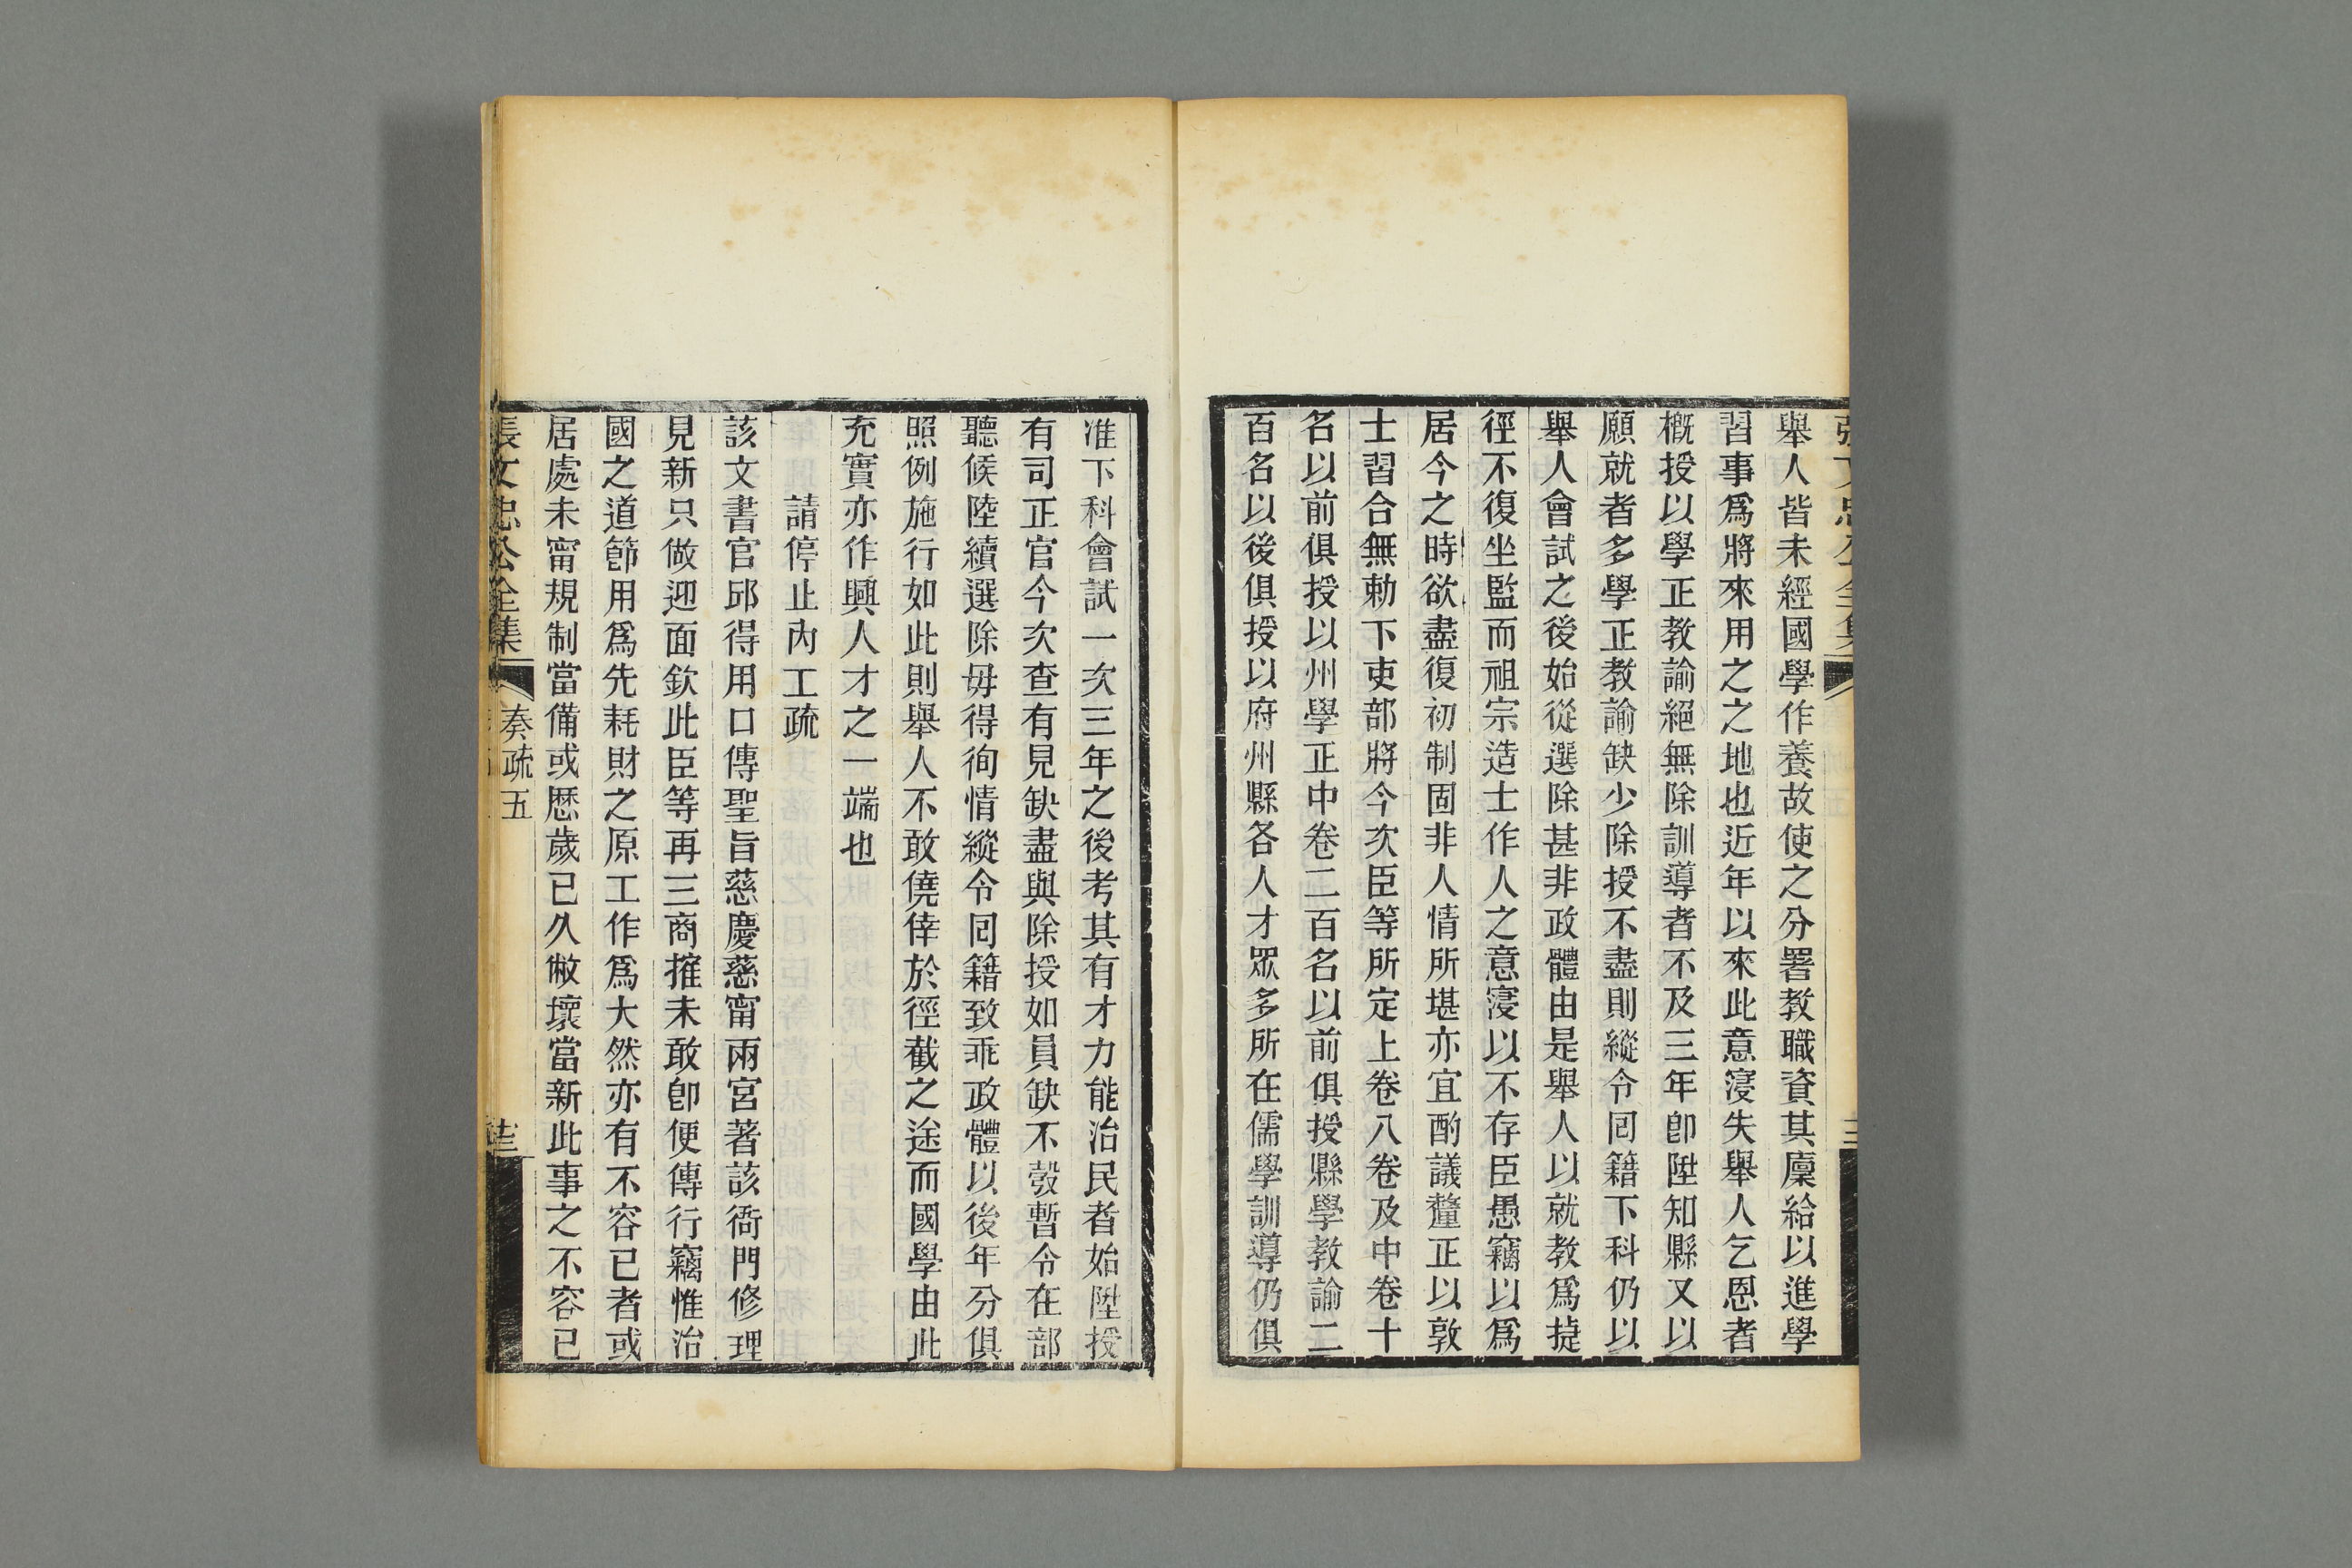 舉人皆未經國學作養故使之分署教職資其廩給以進學
習事爲將來用之之地也近年以來此意寖失舉人乞恩者
槪授以學正教諭絕無除訓導者不及三年卽陞知縣又以
願就者多學正教諭缺少除授不盡則縱令回籍下科仍以
舉人會試之後始從選除甚非政體由是舉人以就教爲㨗
徑不復坐監而祖宗造士作人之意寖以不存臣愚竊以爲
居今之時欲盡復初制固非人情所堪亦宜酌議釐正以敦
士習合無勅下吏部將今次臣等所定上卷八卷及中卷十
名以前俱授以州學正中卷二百名以前俱授縣學教諭二
百名以後俱授以府州縣各人才眾多所在儒學訓導仍俱
准下科會試一次三年之後考其有才力能治民者始陞授
有司正官今次查有見缺盡與除授如員缺不彀暫令在部
聽候陸續選除毋得徇情縱令回籍致乖政體以後年分俱
照例施行如此則舉人不敢僥倖於徑截之途而國學由此
充實亦作興人才之一端也
請停止內工疏
該文書官邱得用口傳聖旨慈慶慈甯兩宮著該衙門修理
見新只做迎面欽此臣等再三商搉未敢卽便傳行竊惟治
國之道節用爲先耗財之原工作爲大然亦有不容已者或
居處未甯規制當備或歷歲已久敝壞當新此事之不容已
張文忠公全集 奏疏五